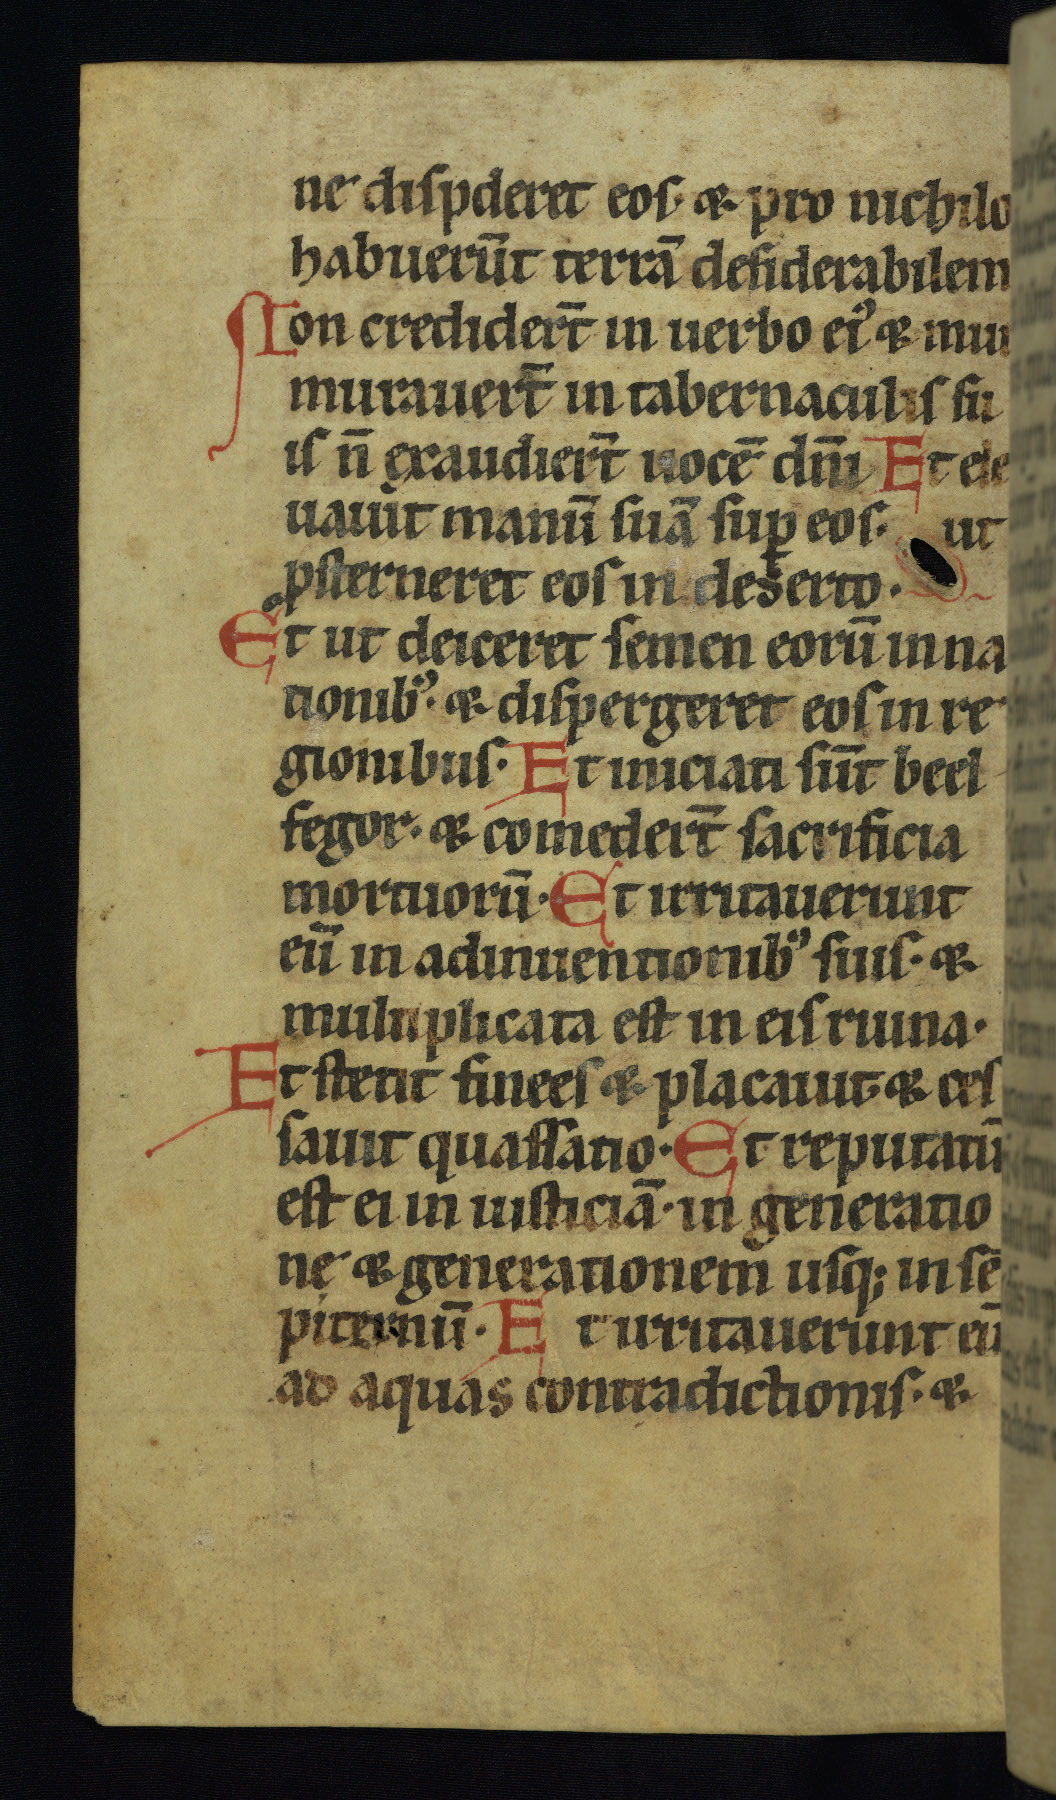 ne disp̲deret eos· ⁊ pro nichilo
habuerūt terrā desiderabilem
Non crediderт̄ in uerbo ei᷒ ⁊ mur
murauerт̄ in tabernaculis su
is n̄ exaudierт̄ uocē dn̄i Et ele
uauit manū suā sup̲ eos· ut
ꝓsterneret eos in deserto·
Et ut deiceret semen eorū in na
tionib᷒· ⁊ dispergeret eos in re
gionibus· Et iniciati sūt beel
fegor· ⁊ comederт̄ sacrificia
mortuorū· Et irritauerunt
eū in adinuentionib᷒ suis· ⁊
multiplicata est in eis ruina·
Et stetit finees ⁊ placauit· ⁊ ces
sauit quassatio· Et reputatū
est ei in iusticiā· in generatio
nē ⁊ generationem usq; in sē
piternū· Et irritauerunt eū
ad aquas contradictionis· ⁊